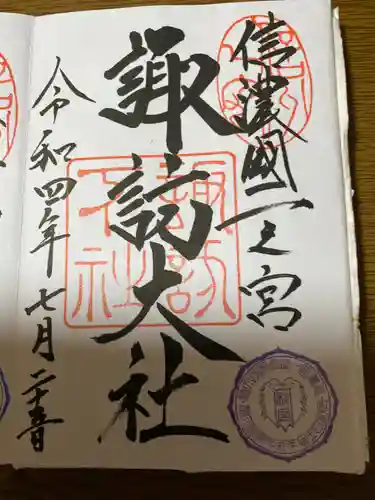 信濃國一之宮
諏訪大社
諏訪
下社
令和四年七月二十五日